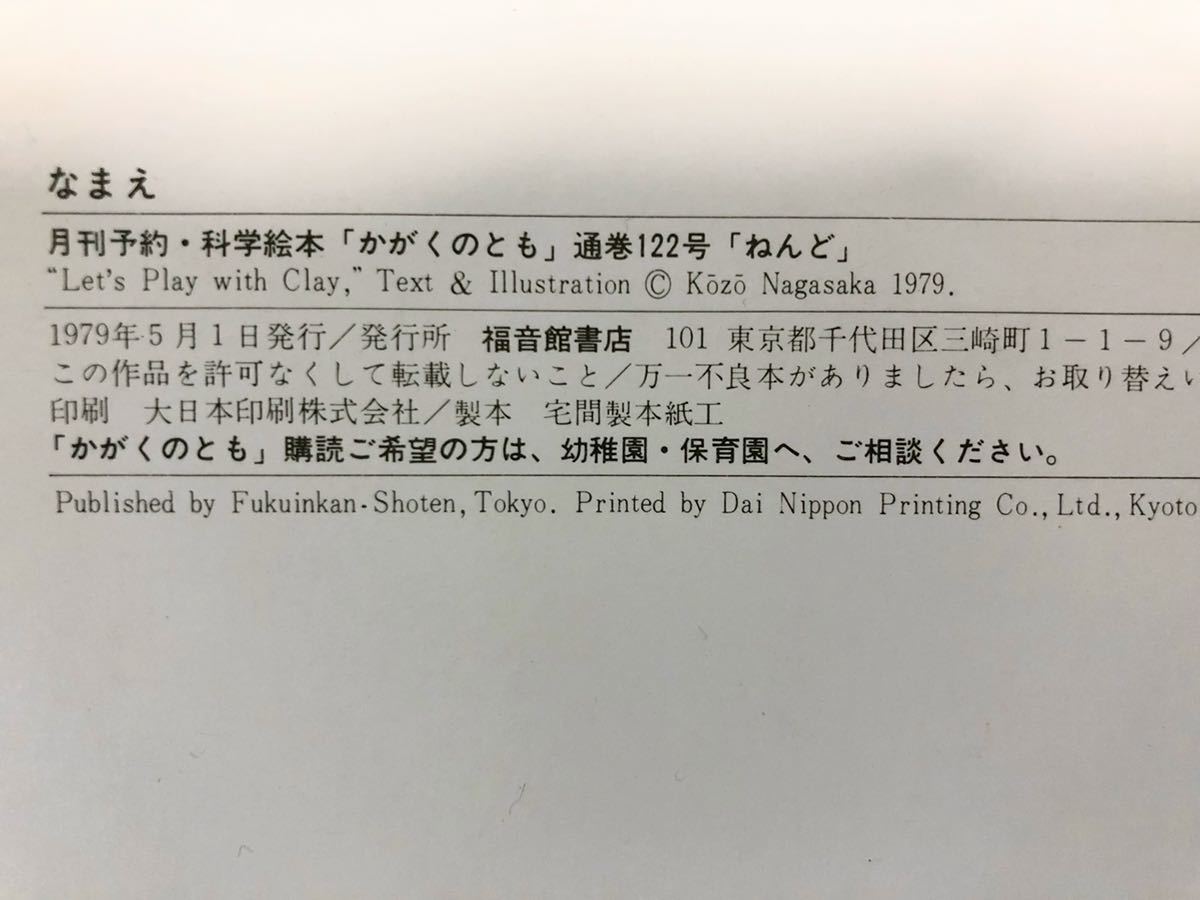 なまえ
月刊予約・科学絵本「かがくのとも」通巻122号「ねんど」
“Let's Play with Clay,” Text & Illustration © Kōzō Nagasaka 1979.
1979年5月1日発行／発行所　福音館書店　101 東京都千代田区三崎町1－1－9／
この作品を許可なくして転載しないこと／万一不良本がありましたら、お取り替えい
印刷　大日本印刷株式会社／製本　宅間製本紙工
「かがくのとも」購読ご希望の方は、幼稚園・保育園へ、ご相談ください。
Published by Fukuinkan-Shoten, Tokyo. Printed by Dai Nippon Printing Co., Ltd., Kyoto